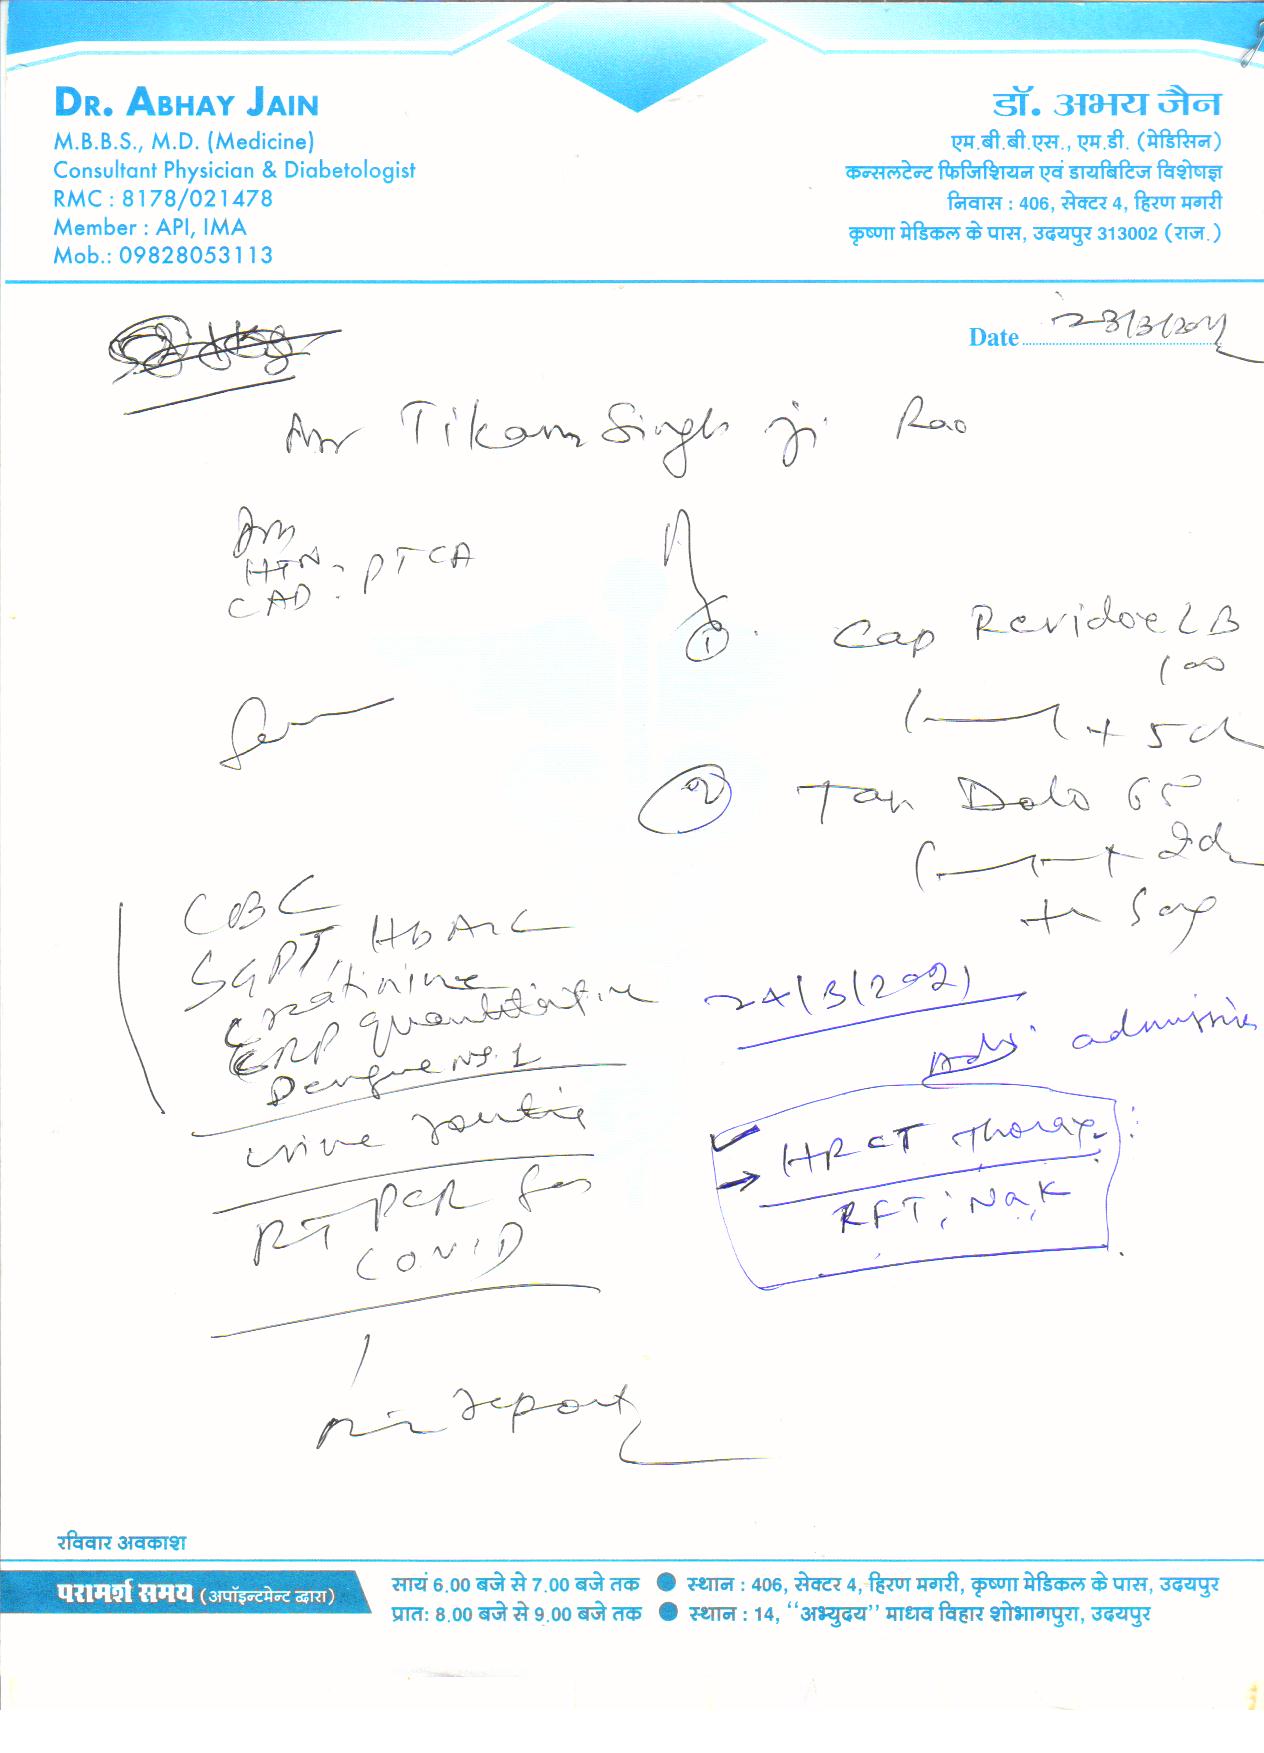 DR. ABHAY JAIN
M.B.B.S., M.D. (Medicine)
Consultant Physician & Diabetologist
RMC : 8178/021478
Member : API, IMA
Mob.: 09828053113
डॉ. अभय जैन
एम.बी.बी.एस., एम.डी. (मेडिसिन)
कन्सलटेन्ट फिजिशियन एवं डायबिटिज विशेषज्ञ
निवास : 406, सेक्टर 4, हिरण मगरी
कृष्णा मेडिकल के पास, उदयपुर 313002 (राज.)
Date 23/3/2021
Mr Tikam Singh ji Rao
DM
HTN - PTCA
CAD
① Cap Revidox LB
100
1——1 × 5d
② Tab Dolo 65
× 2d
CBC
SGPT, HbA1C
Creatinine
CRP quantitative
Dengue NS1
urine routine
RT PCR for
COVID
report
24/3/2021
Adv admission
HRCT Thorax
RFT, Na, K
रविवार अवकाश
परामर्श समय (अपॉइन्टमेन्ट द्वारा)
सायं 6.00 बजे से 7.00 बजे तक ● स्थान : 406, सेक्टर 4, हिरण मगरी, कृष्णा मेडिकल के पास, उदयपुर
प्रात: 8.00 बजे से 9.00 बजे तक ● स्थान : 14, ‘‘अभ्युदय’’ माधव विहार शोभागपुरा, उदयपुर